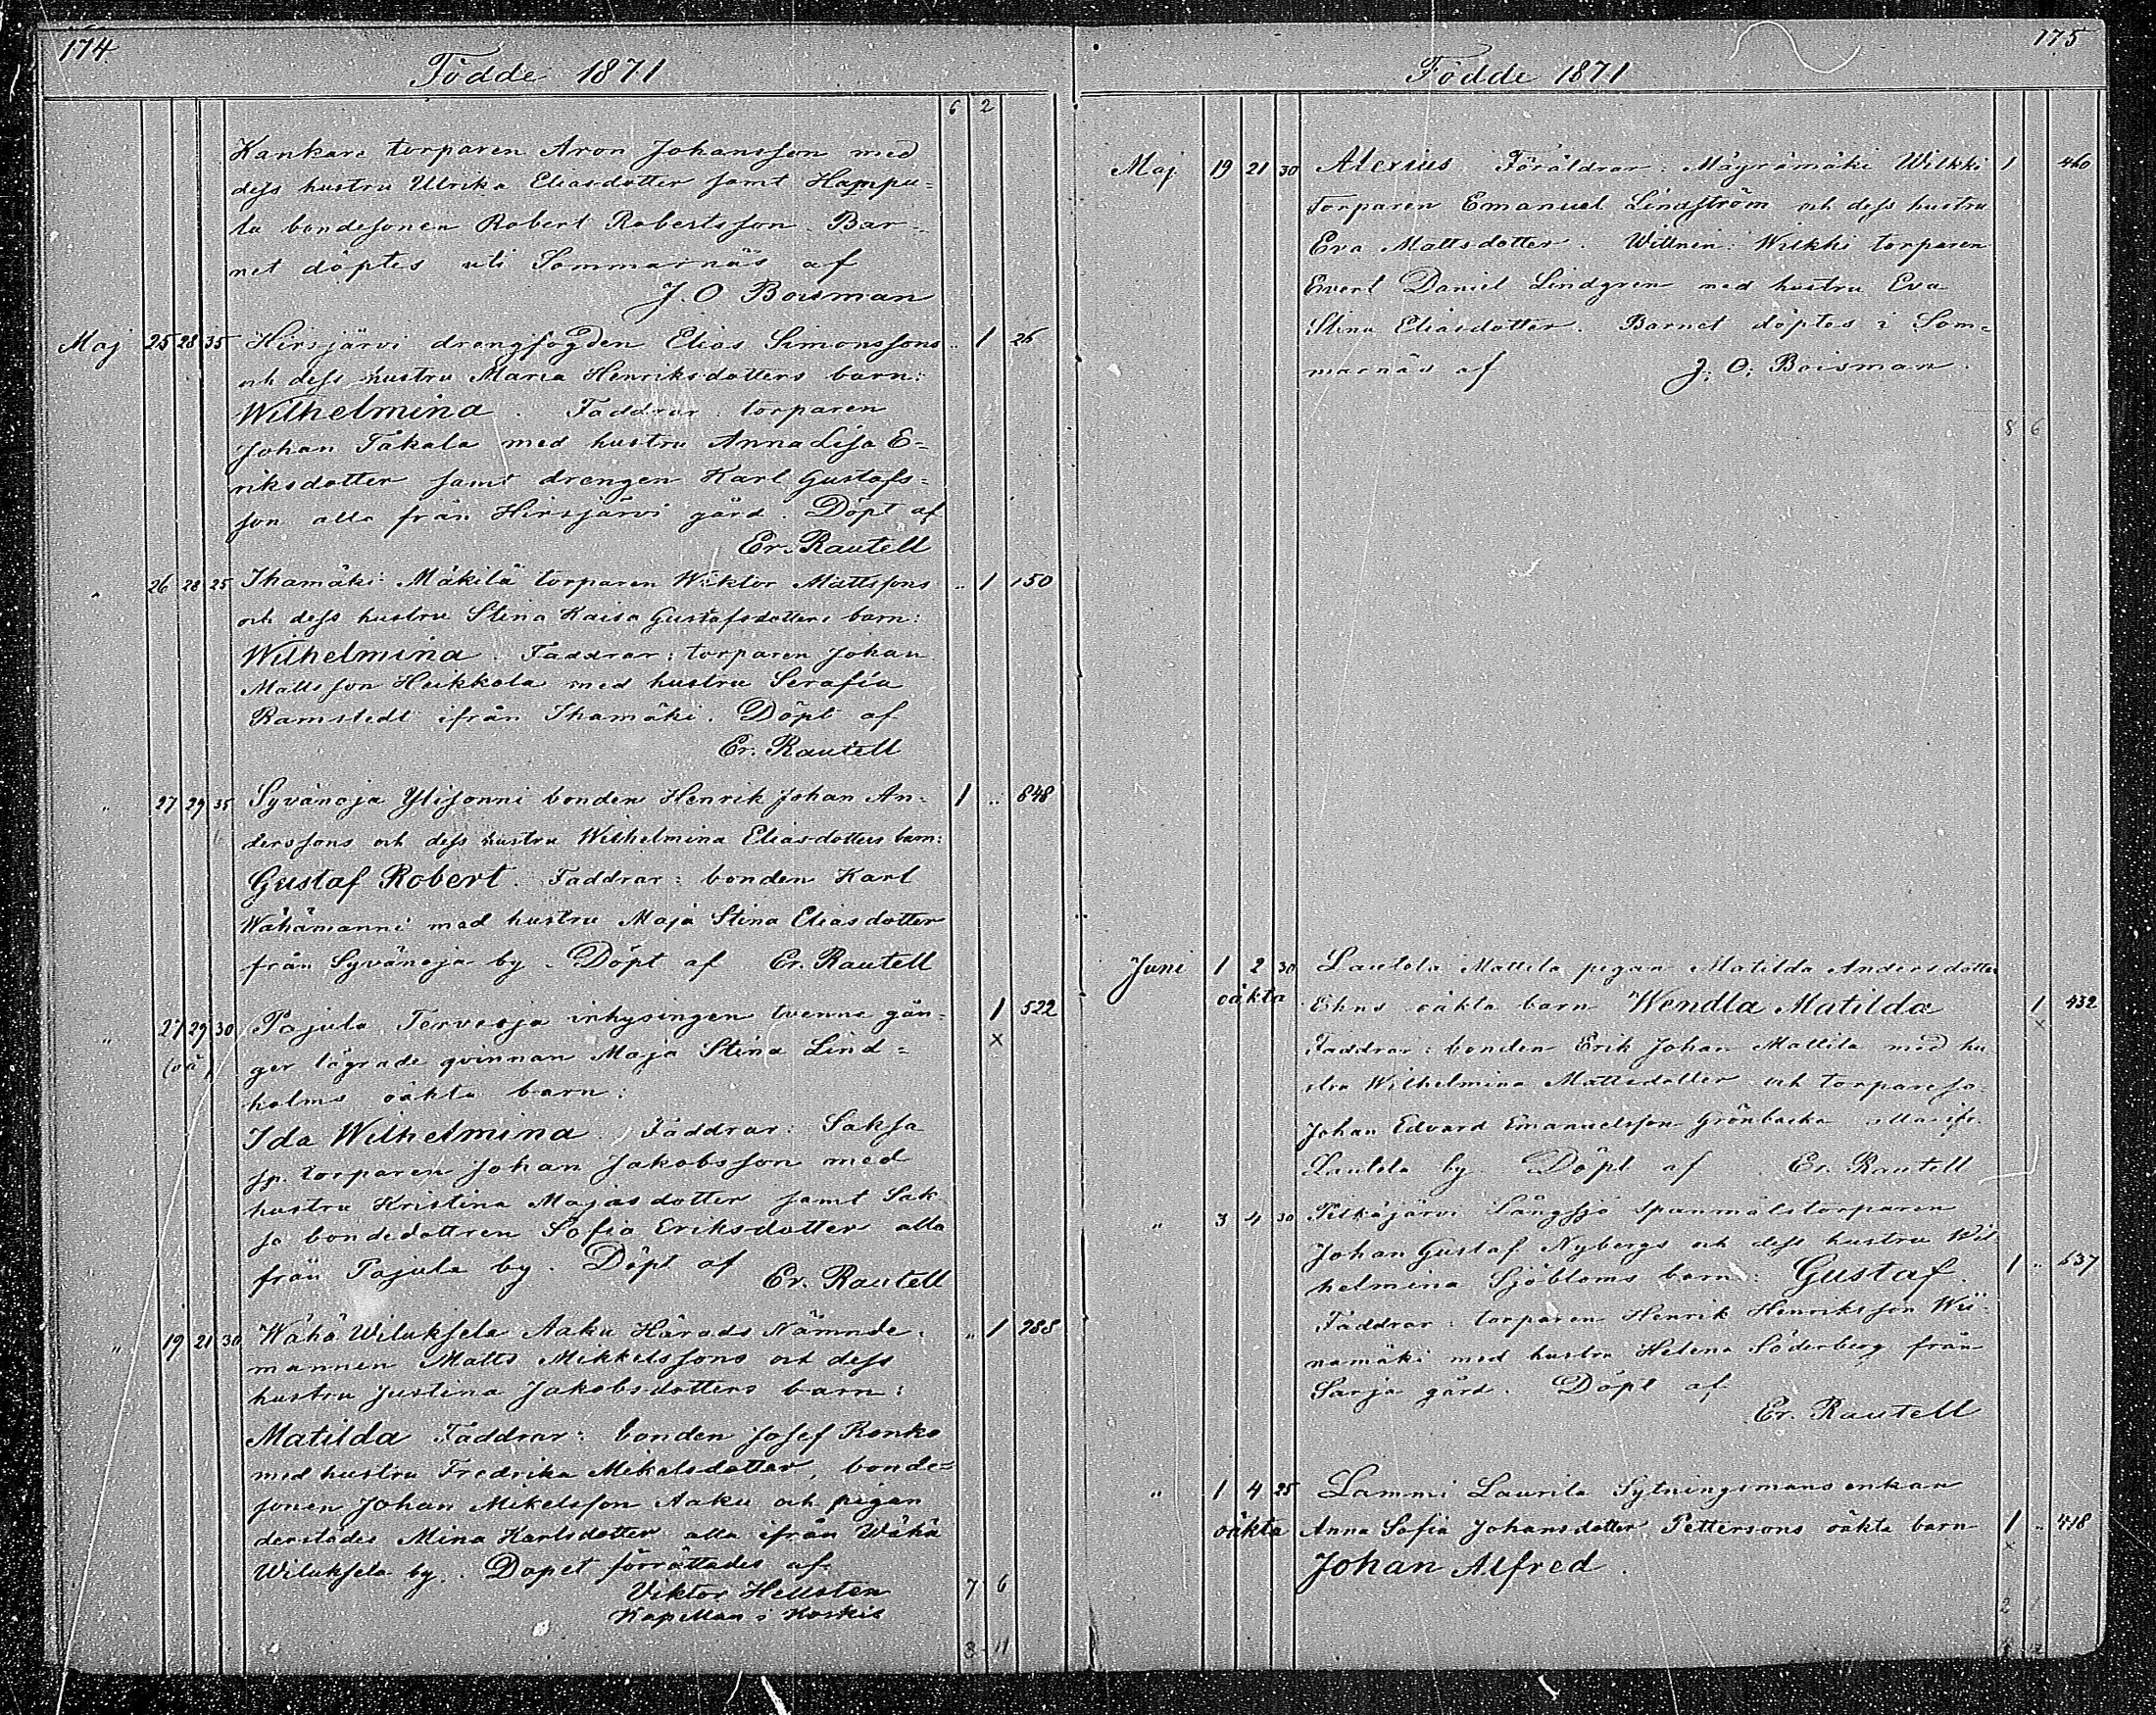 174.
Födde 1871
6 2
Kankare torparen Aron Johansson med
dess hustru Ulrika Eliasdotter samt Hampu=
la bondesonen Robert Robertsson. Bar-
net döptes uti Sommarnäs af
J. O Boisman
Maj 25 28 35 Hirsjärvi drengfogden Elias Simonssons .. 1 26
och dess hustru Maria Henriksdotters barn:
Wilhelmina. Faddrar: torparen
Johan Takala med hustru Anna Lisa E=
riksdotter samt drengen Karl Gustafs=
son alla från Hirsjärvi gård. Döpt af
Er. Rautell
" 26 28 25 Ihamäki Mäkilä torparen Wiktor Mattssons .. 1 150
och dess hustru Stina Kaisa Gustafsdotters barn:
Wilhelmina. Faddrar: torparen Johan
Mattsson Heikkola med hustru Serafia
Ramstedt ifrån Ihamäki. Döpt af
Er. Rautell
" 27 29 35 Syvänoja Ylisonni bonden Henrik Johan An- 1 .. 848
derssons och dess hustru Wilhelmina Eliasdotters barn:
Gustaf Robert. Faddrar: bonden Karl
Wähämanni med hustru Maja Stina Eliasdotter
från Syvänoja by. Döpt af Er. Rautell
" 27 29 30 Pajula Tervaoja inhysingen tvenne gån- 1 522
(oä) ger lägrade qvinnan Maja Stina Lind= x
holms oäkta barn:
Ida Wilhelmina. Faddrar: Saksa
sp. torparen Johan Jakobsson med
hustru Kristina Majasdotter samt Sak
sa bondedottren Sofia Eriksdotter alla
från Pajula by. Döpt af Er. Rautell
" 19 21 30 Wähä Wiluksela Aaku Härads Nämnde- " 1 288
mannen Matts Mikkelssons och dess
hustru Justina Jakobsdotters barn:
Matilda Faddrar: bonden Josef Ronko
med hustru Fredrika Mikelsdotter, bonde=
sonen Johan Mikelsson Aaku och pigan
derstädes Mina Karlsdotter alla ifrån Wähä
Wiluksela by. Dopet förrättades af
Viktor Hellsten 7 6
Kapellan i Koskis
8 11
175
Födde 1871
Maj 19 21 30 Alexius Föräldrar: Mäyrämäki Wilkki 1 460
Torparen Emanuel Lindström och dess hustru
Eva Mattsdotter. Wittnen: Wilkki torparen
Evert Daniel Lindgren med hustru Eva
Stina Eliasdotter. Barnet döptes i Som=
marnäs af J. O. Boisman.
8 6
Juni 1 2 30 Lautela Mattila pigan Matilda Andersdotter
oäkta Ehns oäkta barn Wendla Matilda 1 432
x
Faddrar: bonden Erik Johan Mattila med hu
stru Wilhelmina Mattsdotter och torpareso
Johan Edvard Emanuelsson Grönbacka alla ifr.
Lautela by Döpt af Er. Rautell
" 3 4 30 Pitkäjärvi Långsjö spanmålstorparen
Johan Gustaf Nybergs och dess hustru Wil
helmina Sjöbloms barn: Gustaf. 1 .. 637
Faddrar: torparen Henrik Henriksson Wii-
namäki med hustru Helena Söderberg från
Sarja gård. Döpt af
Er. Rautell
" 1 4 25 Lammi Laurila Sytningsmansenkan
oäkta Anna Sofia Johansdotter Pettersons oäkta barn 1 .. 418
x
Johan Alfred.
2 1